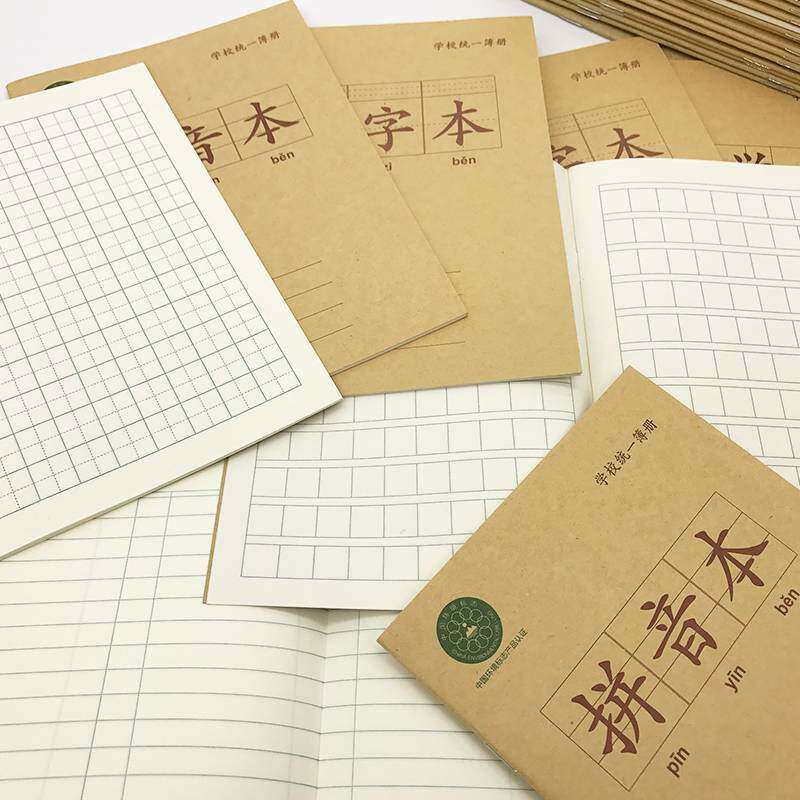 学校统一簿册
音本
běn
学校统一簿册
字本
zì běn
学校统一簿册
字本
学校统一簿册
拼音本
pīn yīn běn
中国环境标志
中国环境标志产品认证